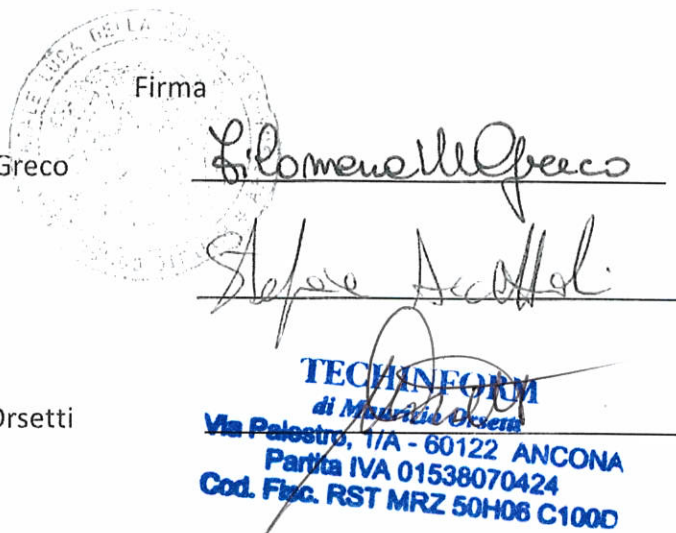 LE LUCA DELLA
Firma
Greco
Filomena M Greco
Stefano
TECHINFORM
di Maurizio Orsetti
Orsetti
Via Palestro, 1/A - 60122 ANCONA
Partita IVA 01538070424
Cod. Fisc. RST MRZ 50H06 C100D